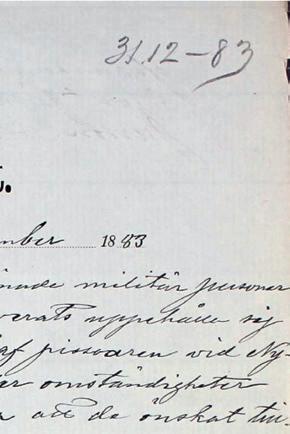 31.12-83
.
mber 1883
nade militär personer
verats uppehålla sig
af pissoaren vid Ny-
er omständigheter
att de önskat till-